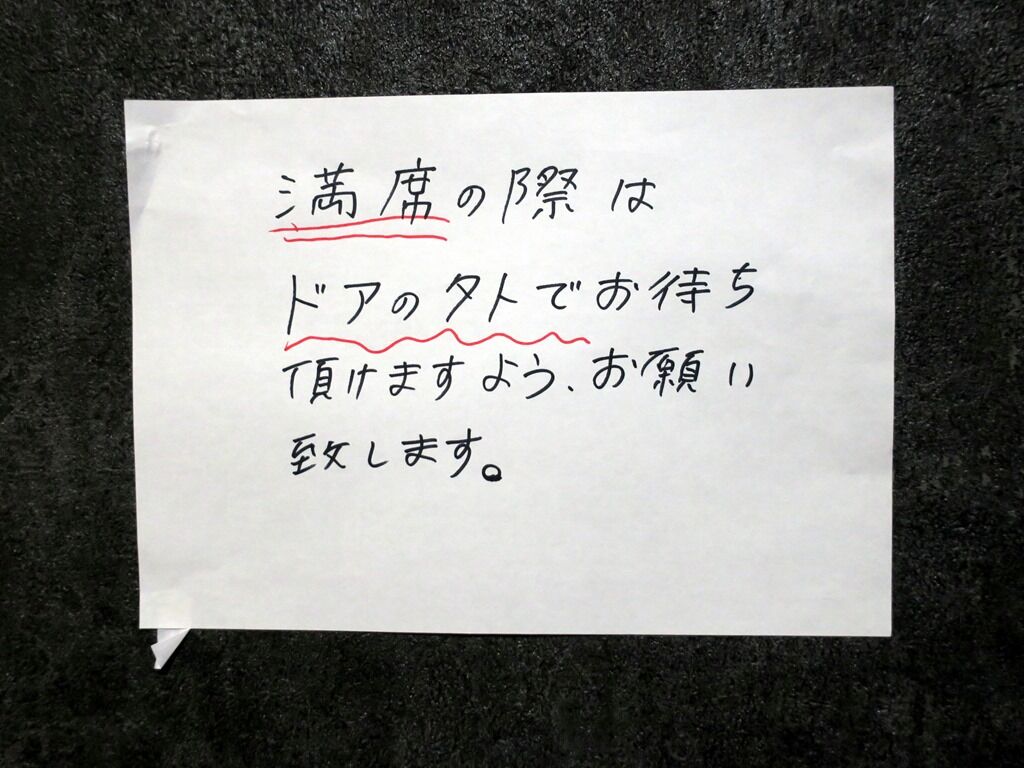 満席の際は
ドアの外でお待ち
頂けますよう、お願い
致します。